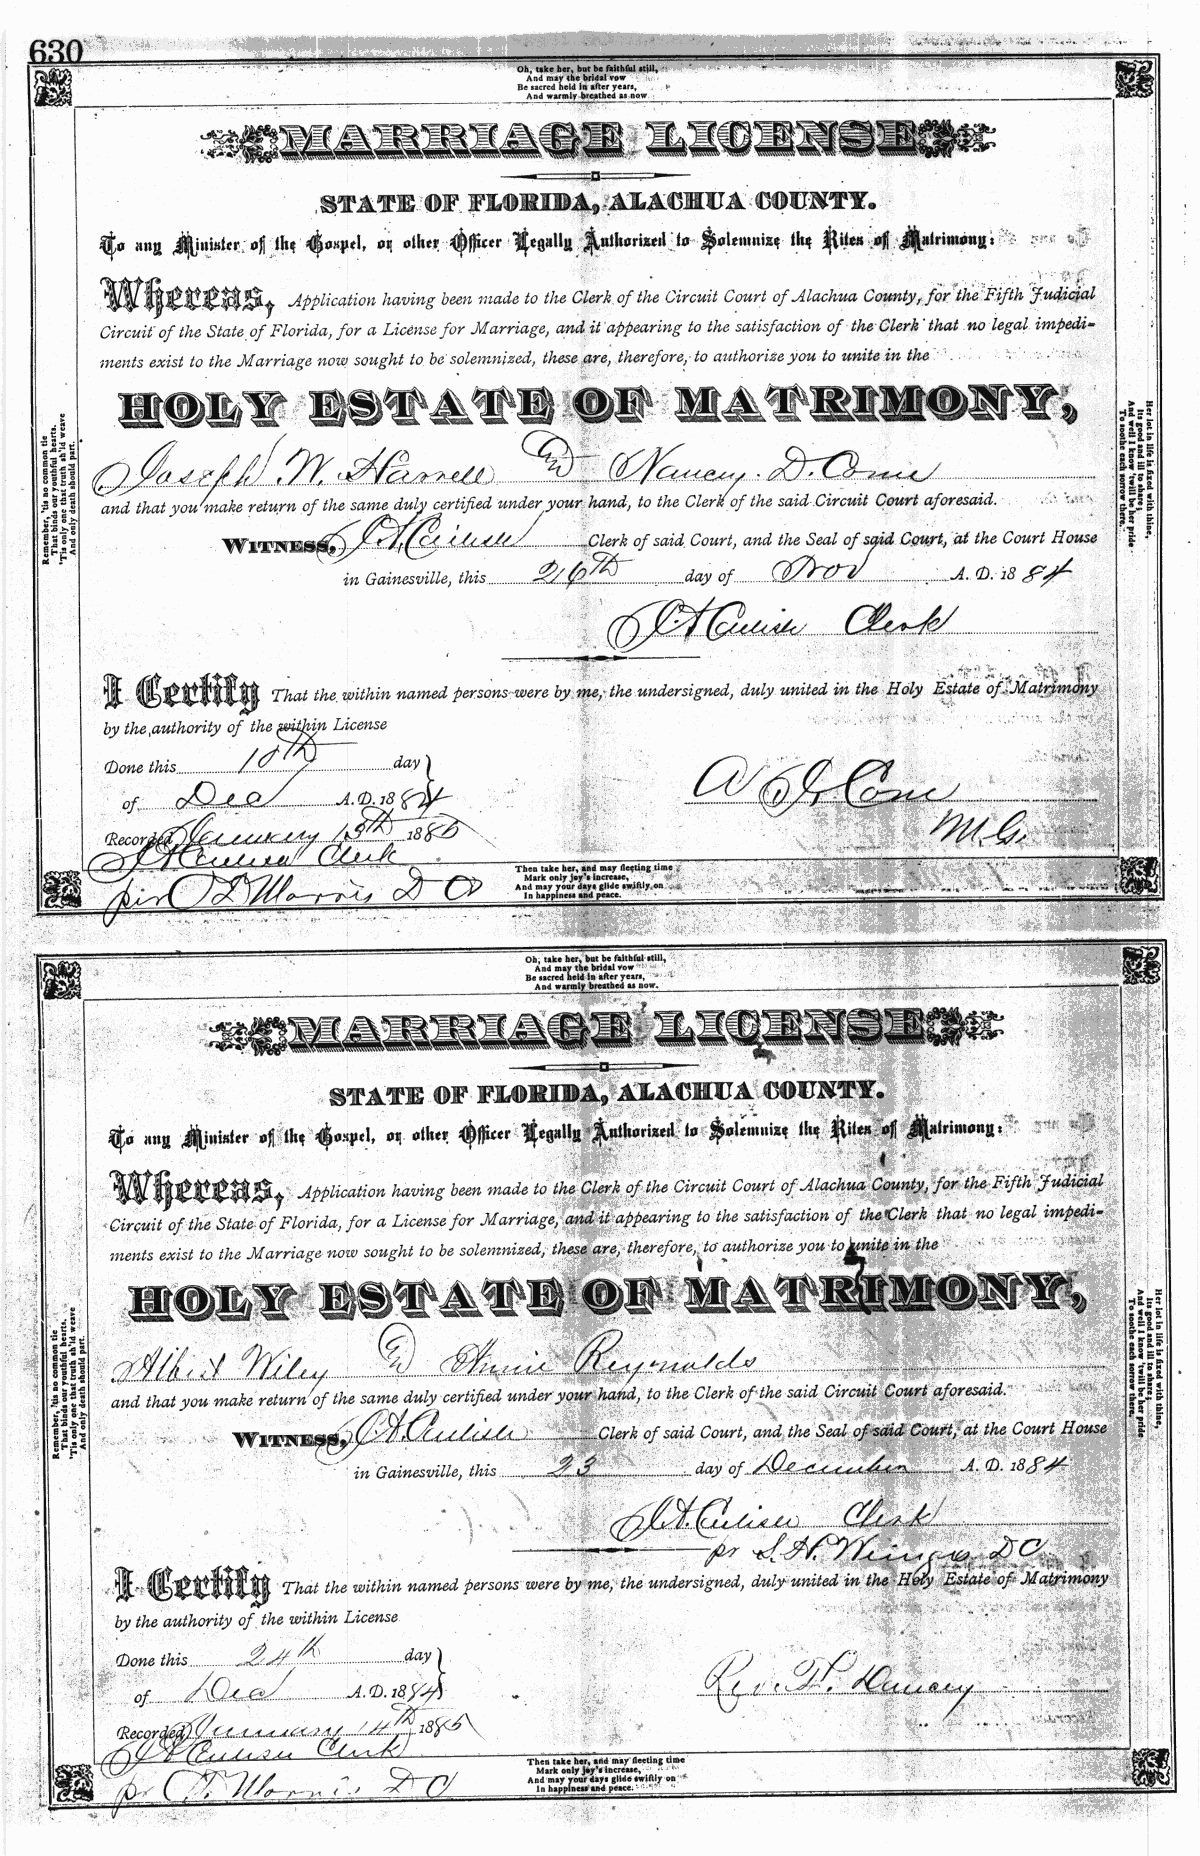 630
Oh, take her, but be faithful still,
And may the bridal vow
Be sacred held in after years,
And warmly breathed as now
MARRIAGE LICENSE
STATE OF FLORIDA, ALACHUA COUNTY.
To any Minister of the Gospel, or other Officer Legally Authorized to Solemnize the Rites of Matrimony:
Whereas, Application having been made to the Clerk of the Circuit Court of Alachua County, for the Fifth Judicial
Circuit of the State of Florida, for a License for Marriage, and it appearing to the satisfaction of the Clerk that no legal impedi-
ments exist to the Marriage now sought to be solemnized, these are, therefore, to authorize you to unite in the
HOLY ESTATE OF MATRIMONY,
Joseph W. Harrell and Nancy D. Cone
and that you make return of the same duly certified under your hand, to the Clerk of the said Circuit Court aforesaid.
WITNESS, J A. Carlisle Clerk of said Court, and the Seal of said Court, at the Court House
in Gainesville, this 26th day of Nov A. D. 1884
J A Carlisle Clerk
I Certify That the within named persons were by me, the undersigned, duly united in the Holy Estate of Matrimony
by the authority of the within License
Done this 10th day
of Dec A.D. 1884
Recorded January 13th 1885
J A Carlisle Clerk
per T Morris D C
M.G.
Remember, 'tis no common tie
That binds our youthful hearts.
'Tis only one that truth sh'ld weave
And only death should part.
Her lot in life is fixed with thine,
Its good and ill to share;
And well I know 'twill be her pride
To soothe each sorrow there.
Then take her, and may fleeting time
Mark only joy's increase,
And may your days glide swiftly on
In happiness and peace.
Oh, take her, but be faithful still,
And may the bridal vow
Be sacred held in after years,
And warmly breathed as now.
MARRIAGE LICENSE
STATE OF FLORIDA, ALACHUA COUNTY.
To any Minister of the Gospel, or other Officer Legally Authorized to Solemnize the Rites of Matrimony:
Whereas, Application having been made to the Clerk of the Circuit Court of Alachua County, for the Fifth Judicial
Circuit of the State of Florida, for a License for Marriage, and it appearing to the satisfaction of the Clerk that no legal impedi-
ments exist to the Marriage now sought to be solemnized, these are, therefore, to authorize you to unite in the
HOLY ESTATE OF MATRIMONY,
Albert Wiley and Annie Reynolds
and that you make return of the same duly certified under your hand, to the Clerk of the said Circuit Court aforesaid.
WITNESS, J A. Carlisle Clerk of said Court, and the Seal of said Court, at the Court House
in Gainesville, this 23 day of December A. D. 1884
J A. Carlisle Clerk
pr S. H. D C
I Certify That the within named persons were by me, the undersigned, duly united in the Holy Estate of Matrimony
by the authority of the within License
Done this 24th day
of Dec A.D. 1884
Rev. F. Dancy
Recorded January 14th 1885
J A Carlisle Clerk
pr T. Morris D C
Remember, 'tis no common tie
That binds our youthful hearts.
'Tis only one that truth sh'ld weave
And only death should part.
Her lot in life is fixed with thine,
Its good and ill to share;
And well I know 'twill be her pride
To soothe each sorrow there.
Then take her, and may fleeting time
Mark only joy's increase,
And may your days glide swiftly on
In happiness and peace.